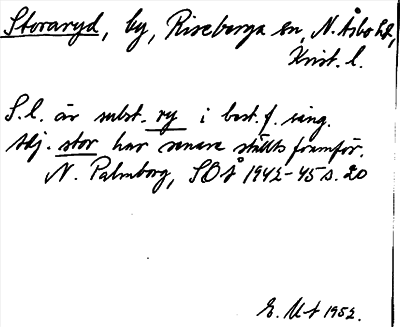 Storaryd, by, Riseberga sn, N. Åsbo hd,
Krist. l.
S.l. är subst. ry i best. f. sing.
Adj. stor har senare ställts framför.
N. Palmborg, SOÅ 1942-45 s. 20
E. Ut 1952.